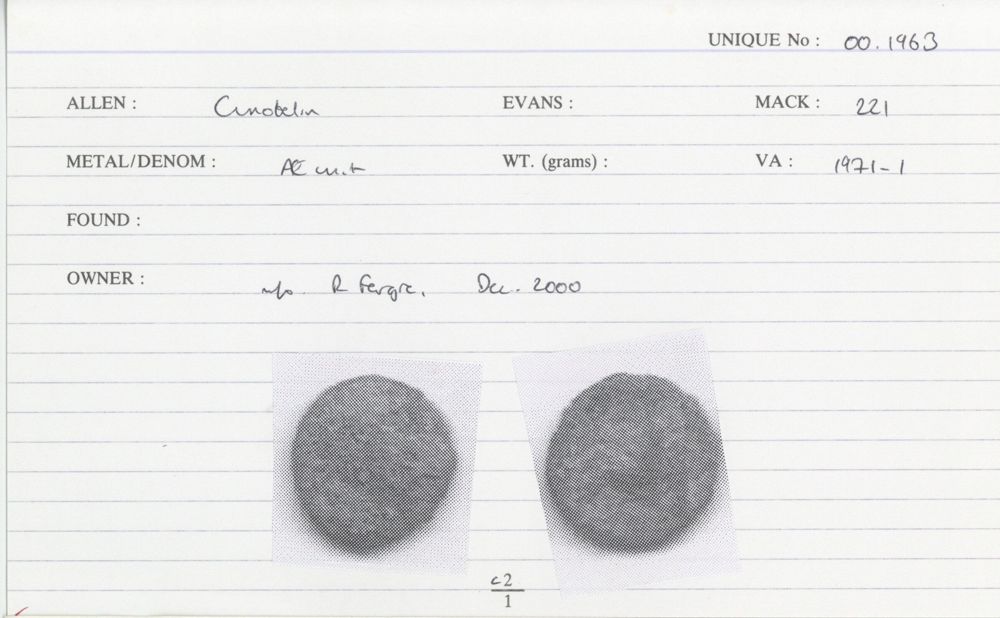 UNIQUE No : 00.1963
ALLEN : Cunobelin EVANS : MACK : 221
METAL/DENOM : Æ unit WT. (grams) : VA : 1971-1
FOUND :
OWNER : R Dec. 2000
c2
1